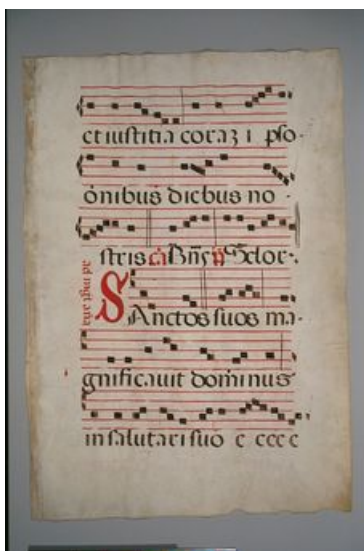 et iustitia coraz i pso
onibus diebus no
stris Bñs Sclor
Sanctos suos ma
gnificavit dominus
in salutari suo e cccc e